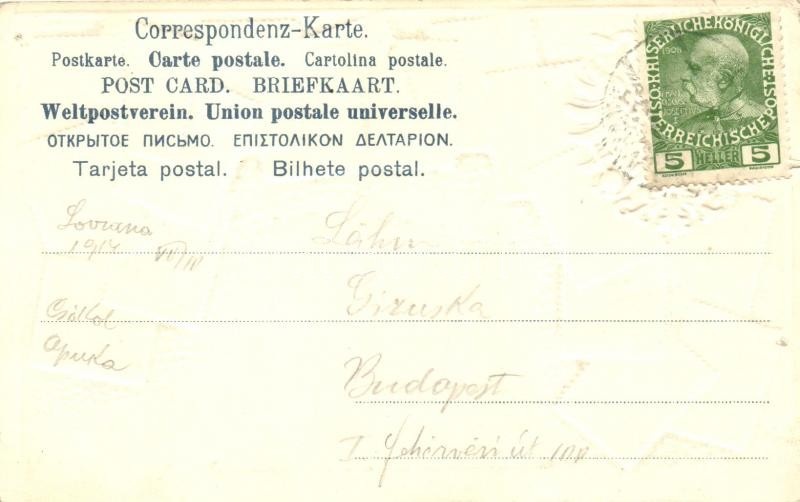 Correspondenz-Karte.
Postkarte. Carte postale. Cartolina postale.
POST CARD. BRIEFKAART.
Weltpostverein. Union postale universelle.
ОТКРЫТОЕ ПИСЬМО. ΕΠΙΣΤΟΛΙΚΟΝ ΔΕΛΤΑΡΙΟΝ.
Tarjeta postal. Bilhete postal.
KAISERLICHE KÖNIGLICHE
ÖSTERREICHISCHE POST
1908
5 HELLER 5
Lovrana
Csókol
Apuka
Gizuska
Budapest
I Fehérvári út